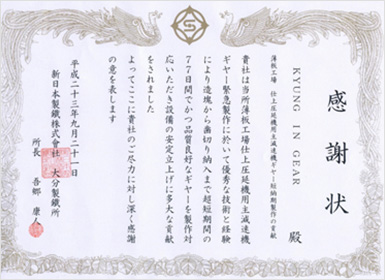 感謝状
KYUNG IN GEAR 殿
薄板工場 仕上圧延機用主減速機ギヤー短納期製作の貢献
貴社は当所薄板工場仕上圧延機用主減速機
ギヤー緊急製作に於いて優秀な技術と経験
により造塊から歯切り納入まで超短期間の
77日間でかつ品質良好なギヤーを製作対
応いただき設備の安定立上げに多大な貢献
をされました
よってここに貴社のご尽力に対し深く感謝
の意を表します
平成二十三年九月二十一日
新日本製鐵株式會社 大分製鐵所
所長 吾郷 康人